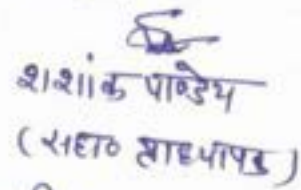 शशांक पाण्डेय
(सहा० प्राध्यापक)